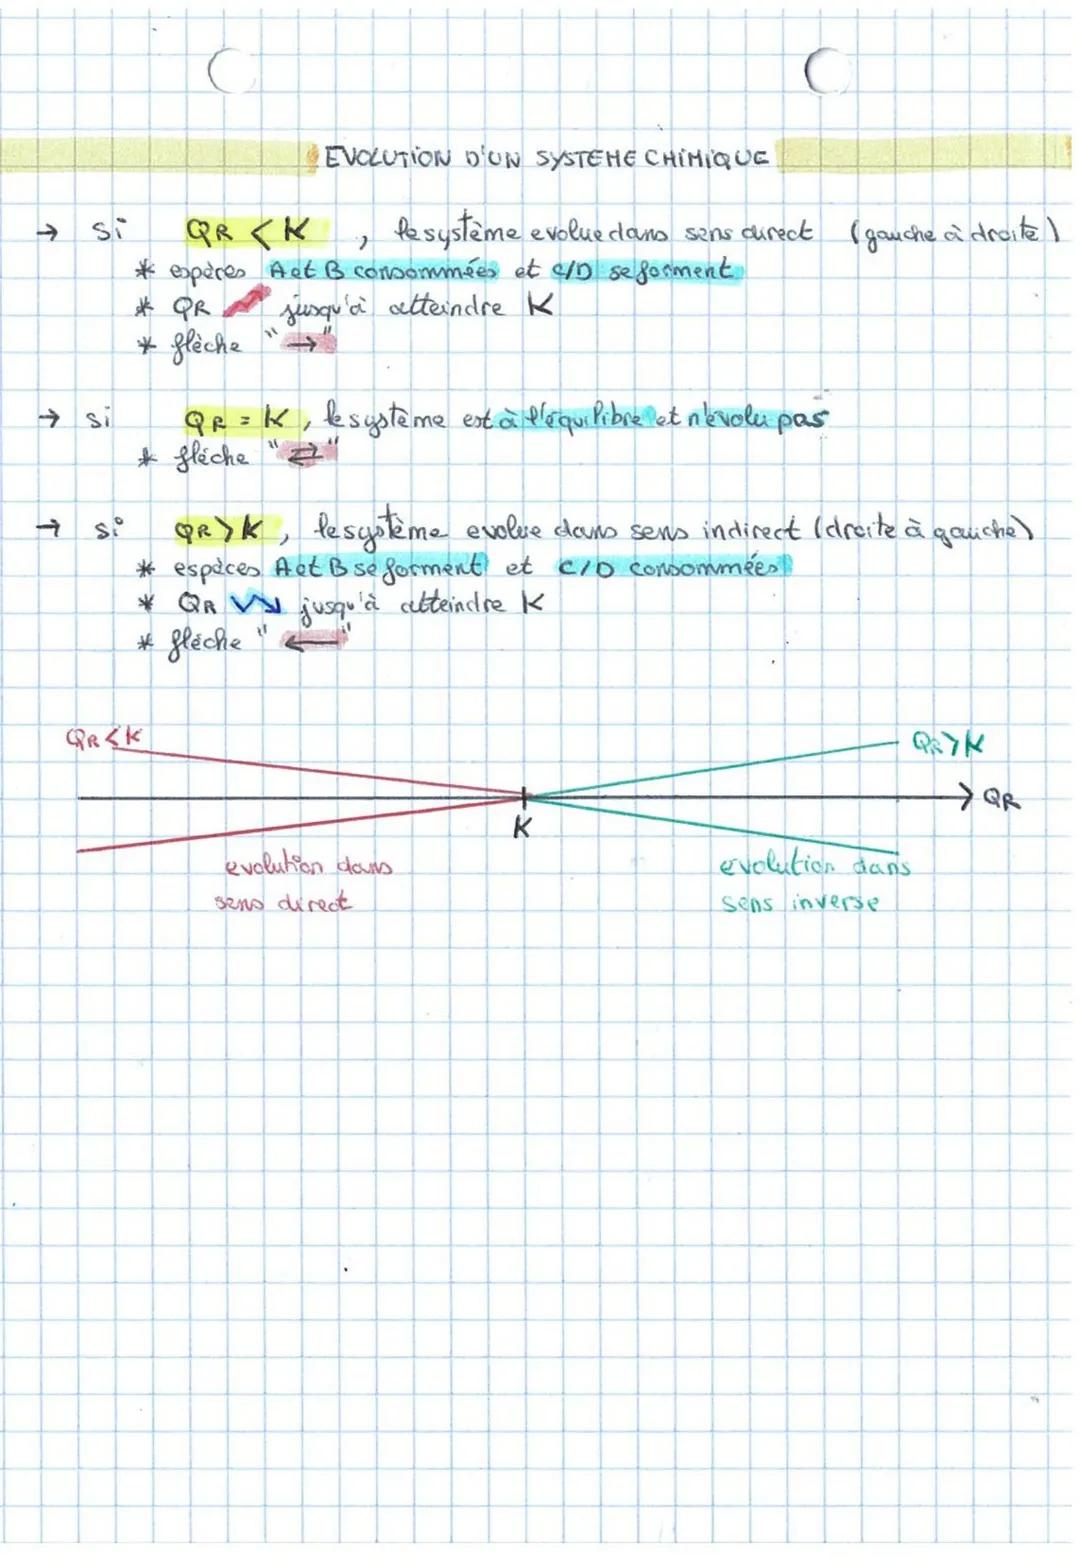 EVOLUTION D'UN SYSTEME CHIMIQUE
→ si QR < K , le système evolue dans sens direct (gauche à droite)
* espèces A et B consommées et C/D se forment
* QR ↗ jusqu'à atteindre K
* flèche "→"
→ si QR = K , le système est à l'équilibre et n'évolu pas
* flèche "⇄"
→ si QR > K , le système evolue dans sens indirect (droite à gauche)
* espèces A et B se forment et C/D consommées
* QR ↘ jusqu'à atteindre K
* flèche "←"
QR < K
QR > K
QR
K
evolution dans
sens direct
evolution dans
sens inverse